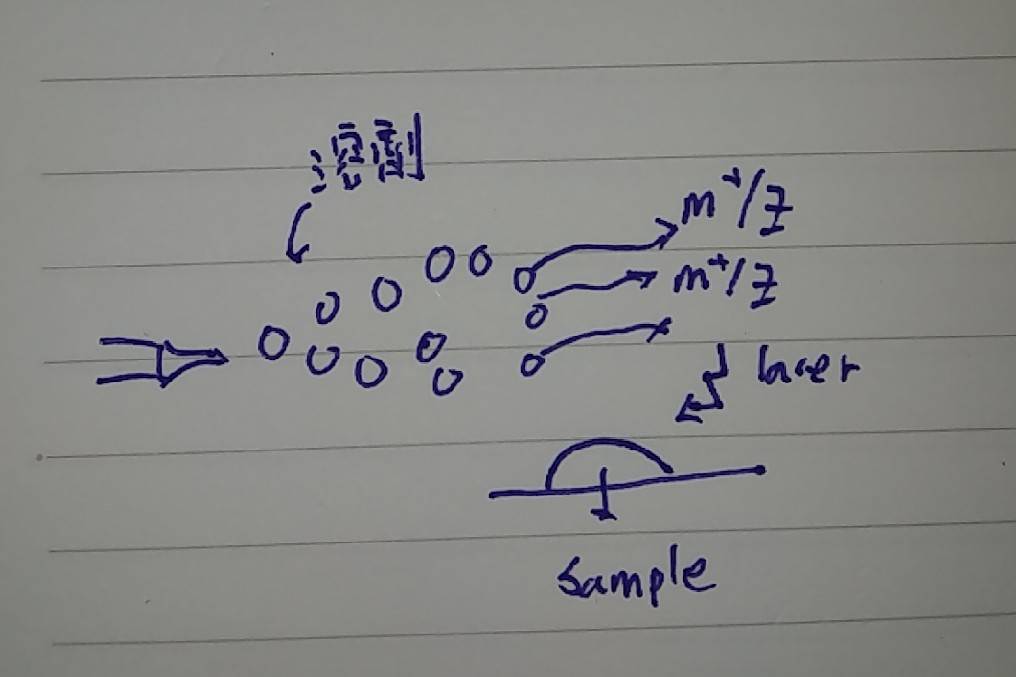 m⁺/z
m⁺/z
laser
sample